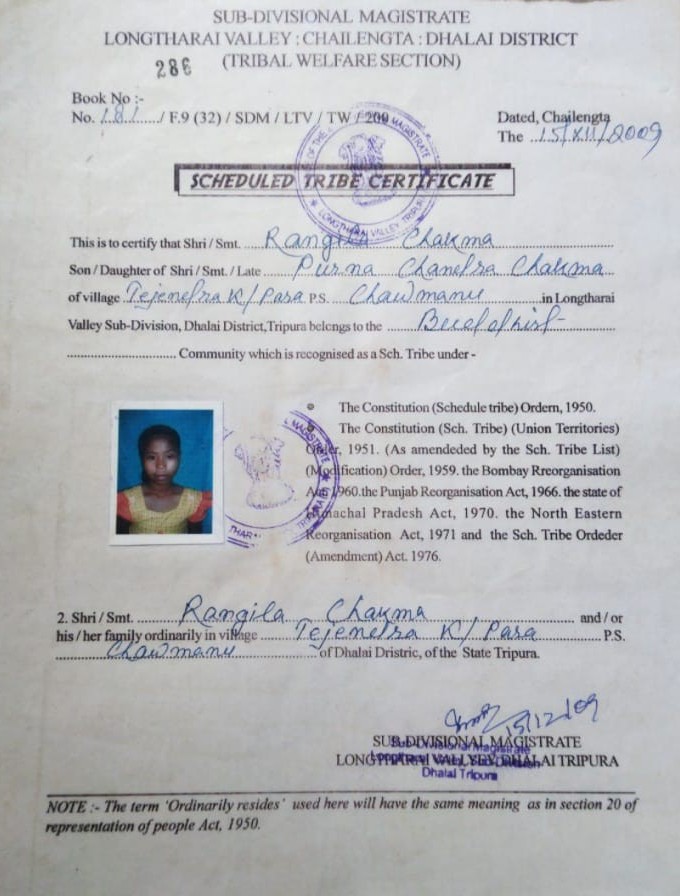 SUB-DIVISIONAL MAGISTRATE
LONGTHARAI VALLEY : CHAILENGTA : DHALAI DISTRICT
(TRIBAL WELFARE SECTION)
286
Book No :-
No. 181 / F.9 (32) / SDM / LTV / TW / 200
Dated, Chailengta
The 15/XII/2009
SCHEDULED TRIBE CERTIFICATE
This is to certify that Shri / Smt. Rangila Chakma
Son / Daughter of Shri / Smt. / Late Purna Chandra Chakma
of village Tejendra K/Para P.S. Chawmanu in Longtharai
Valley Sub-Division, Dhalai District, Tripura belongs to the Buddhist
Community which is recognised as a Sch. Tribe under -
The Constitution (Schedule tribe) Ordern, 1950.
The Constitution (Sch. Tribe) (Union Territories)
Order, 1951. (As amendeded by the Sch. Tribe List)
(Modification) Order, 1959. the Bombay Rreorganisation
Act 1960.the Punjab Reorganisation Act, 1966. the state of
Himachal Pradesh Act, 1970. the North Eastern
Reorganisation Act, 1971 and the Sch. Tribe Ordeder
(Amendment) Act. 1976.
2. Shri / Smt. Rangila Chakma and / or
his / her family ordinarily in village Tejendra K/Para P.S.
Chawmanu of Dhalai Dristric, of the State Tripura.
15/12/09
SUB-DIVISIONAL MAGISTRATE
Sub-Divisional Magistrate
LONGTHARAI VALLYEY, DHALAI TRIPURA
Dhalai Tripura
NOTE :- The term 'Ordinarily resides' used here will have the same meaning as in section 20 of
representation of people Act, 1950.